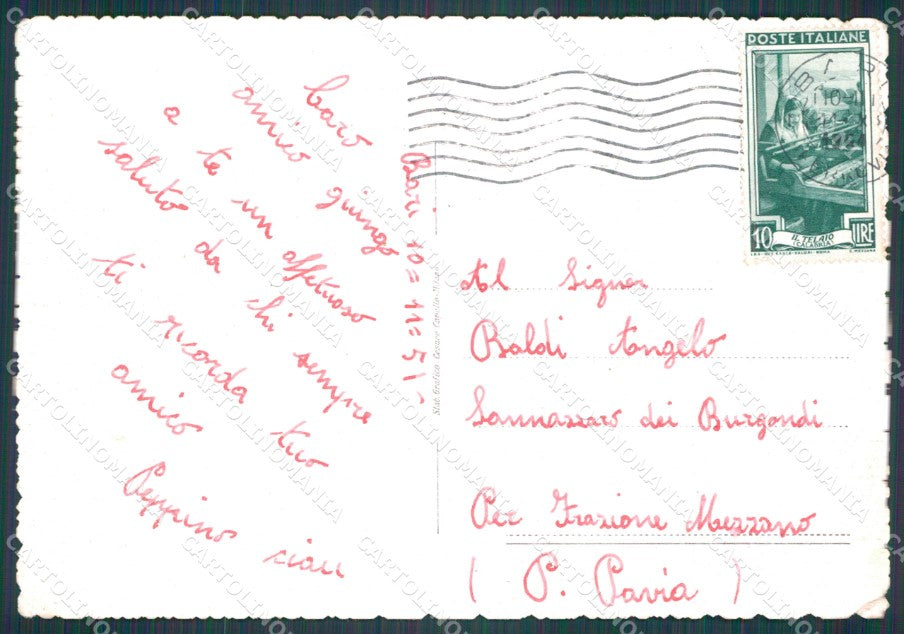 Bari 10=11=51
Caro
amico giungo
a te un affetuoso
saluto da chi sempre
ti ricorda tuo
amico
Peppino ciau
POSTE ITALIANE
10 LIRE
IL TELAIO
(CALABRIA)
Al Signor
Baldi Angelo
Sannazzaro dei Burgondi
Per Frazione Mezzano
( P. Pavia )
CARTOLINOMANIA